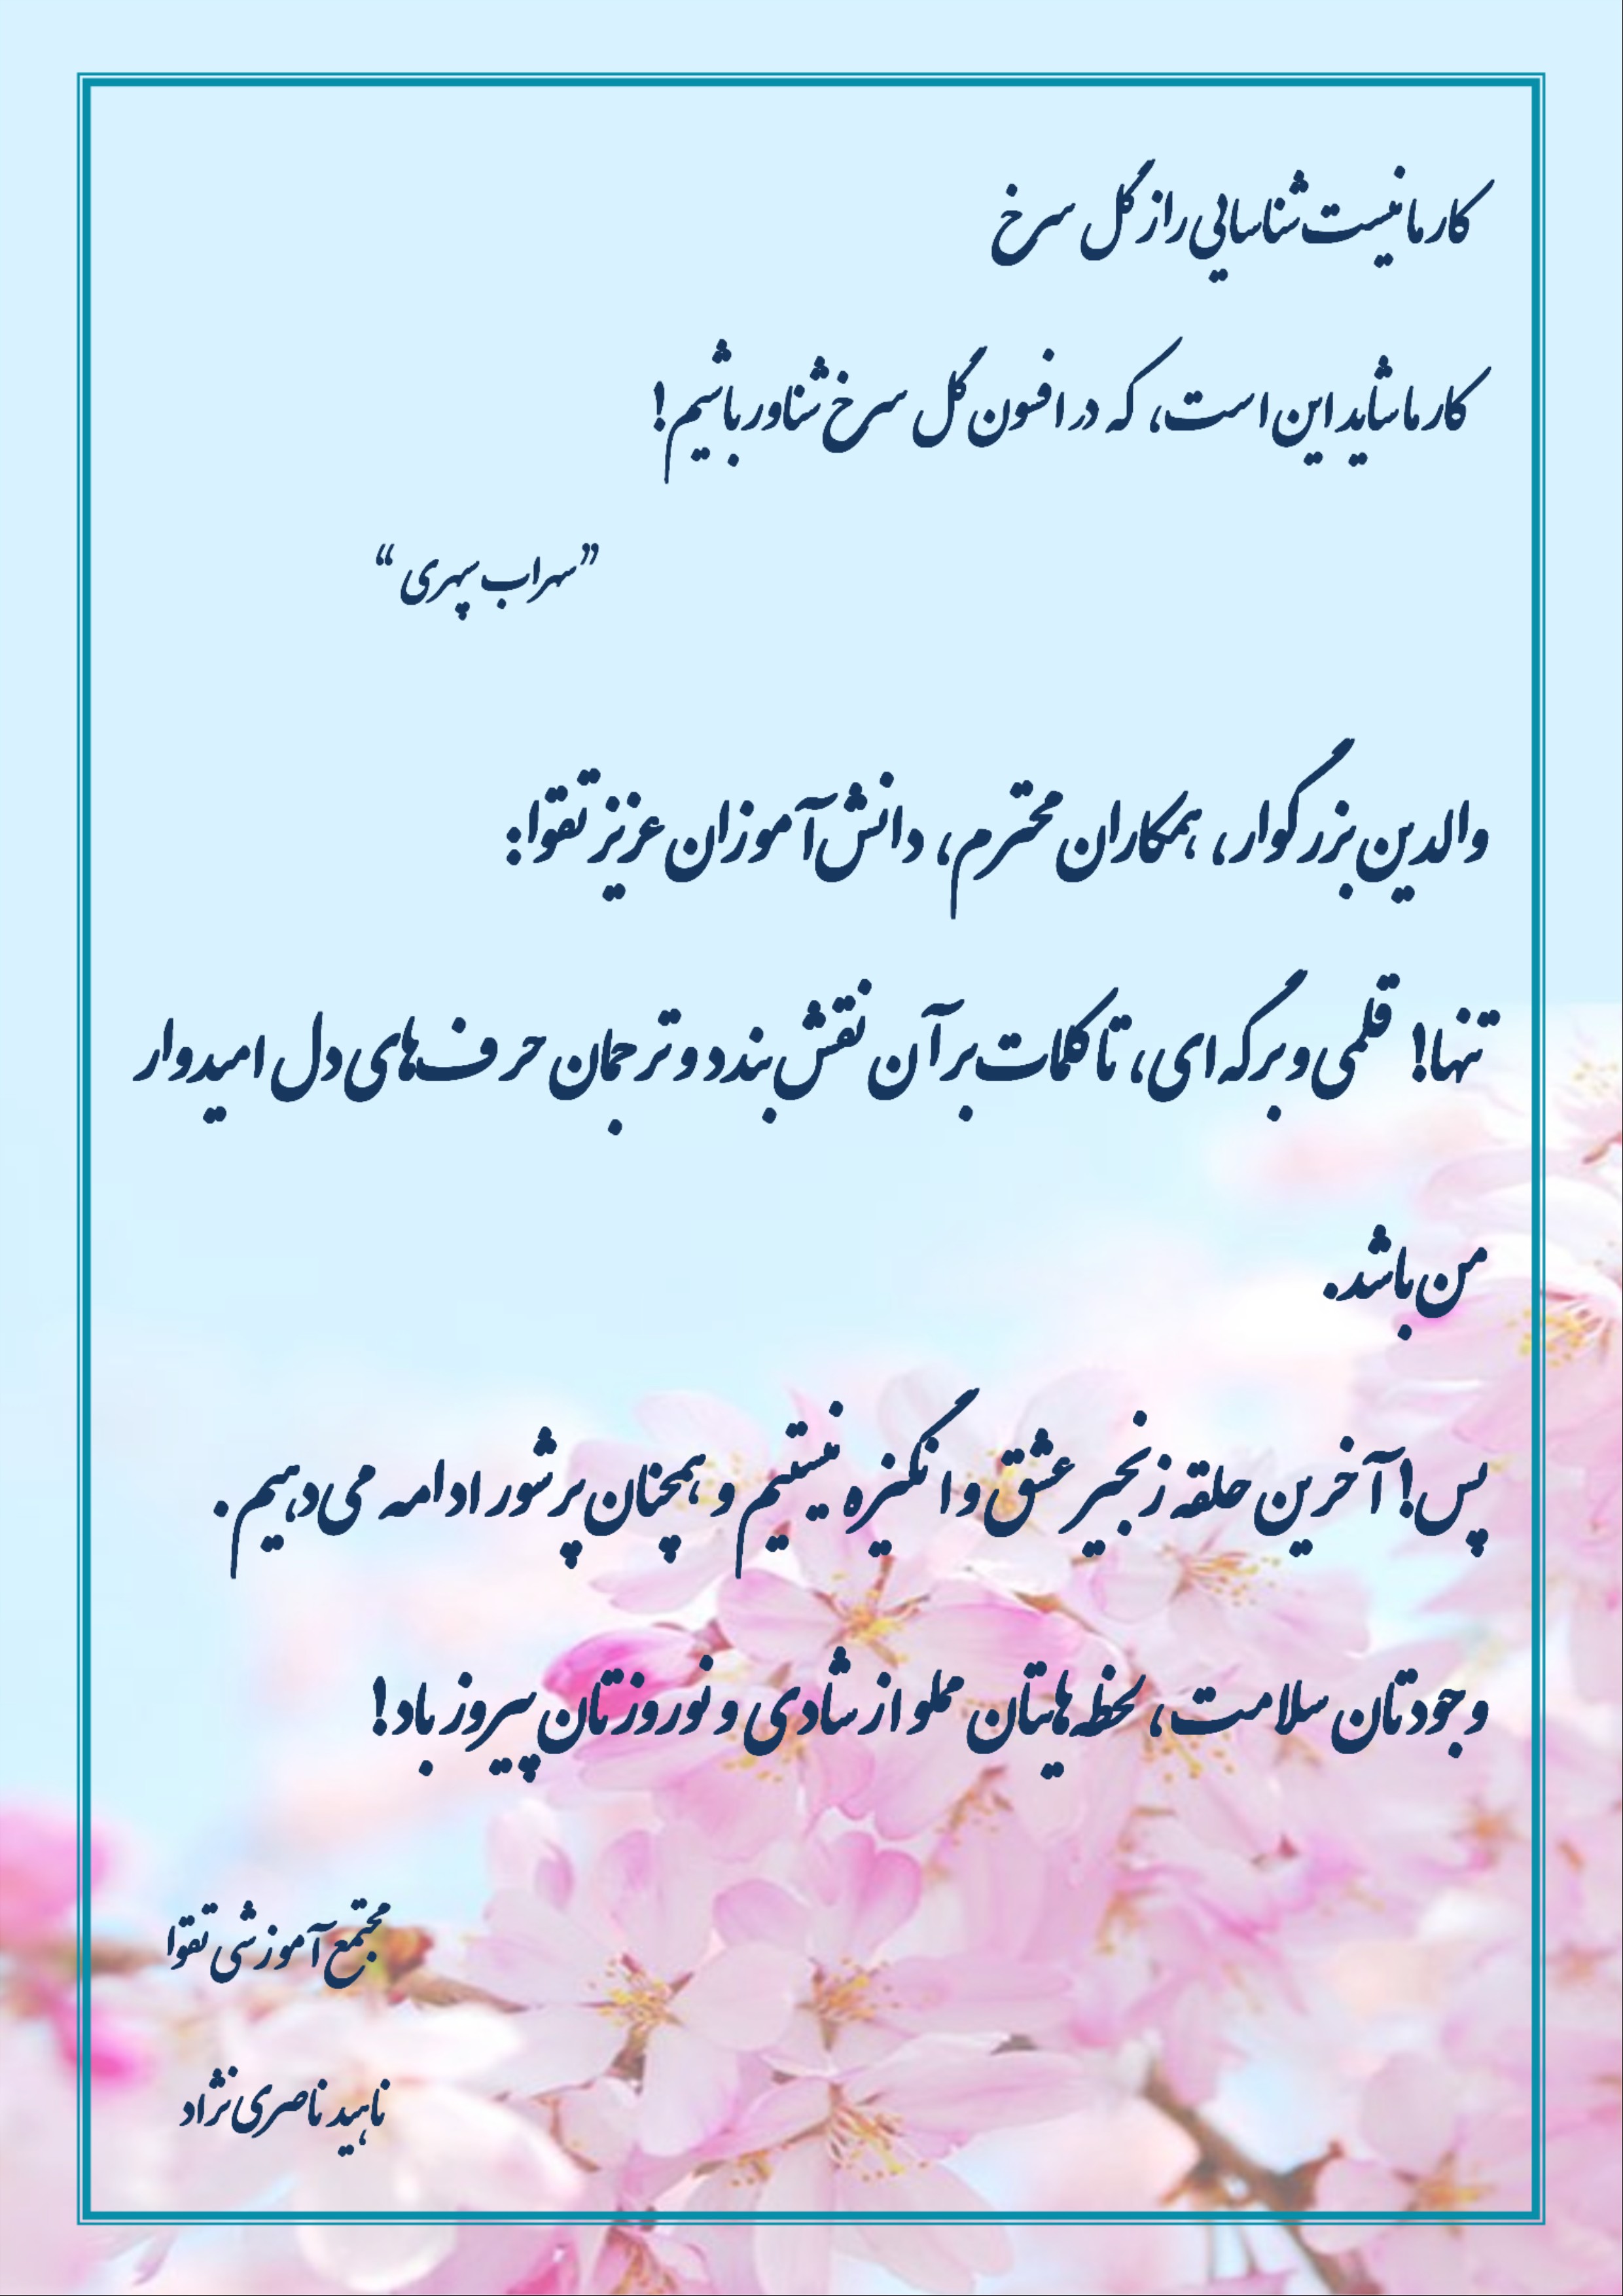 کار ما نیست شناسایی راز گل سرخ
کار ما شاید این است، که در افسون گل سرخ شناور باشیم!
”سهراب سپهری “
والدین بزرگوار، همکاران محترم، دانش‌آموزان عزیز تقوا:
تنها! قلمی و برگه ای، تا کلمات بر آن نقش بندد و ترجمان حرف‌های دل امیدوار
من باشد.
پس! آخرین حلقه زنجیر عشق و انگیزه نیستیم و همچنان پر شور ادامه می‌دهیم.
وجودتان سلامت، لحظه‌هایتان مملو از شادی و نوروزتان پیروز باد!
مجتمع آموزشی تقوا
ناهید ناصری‌نژاد